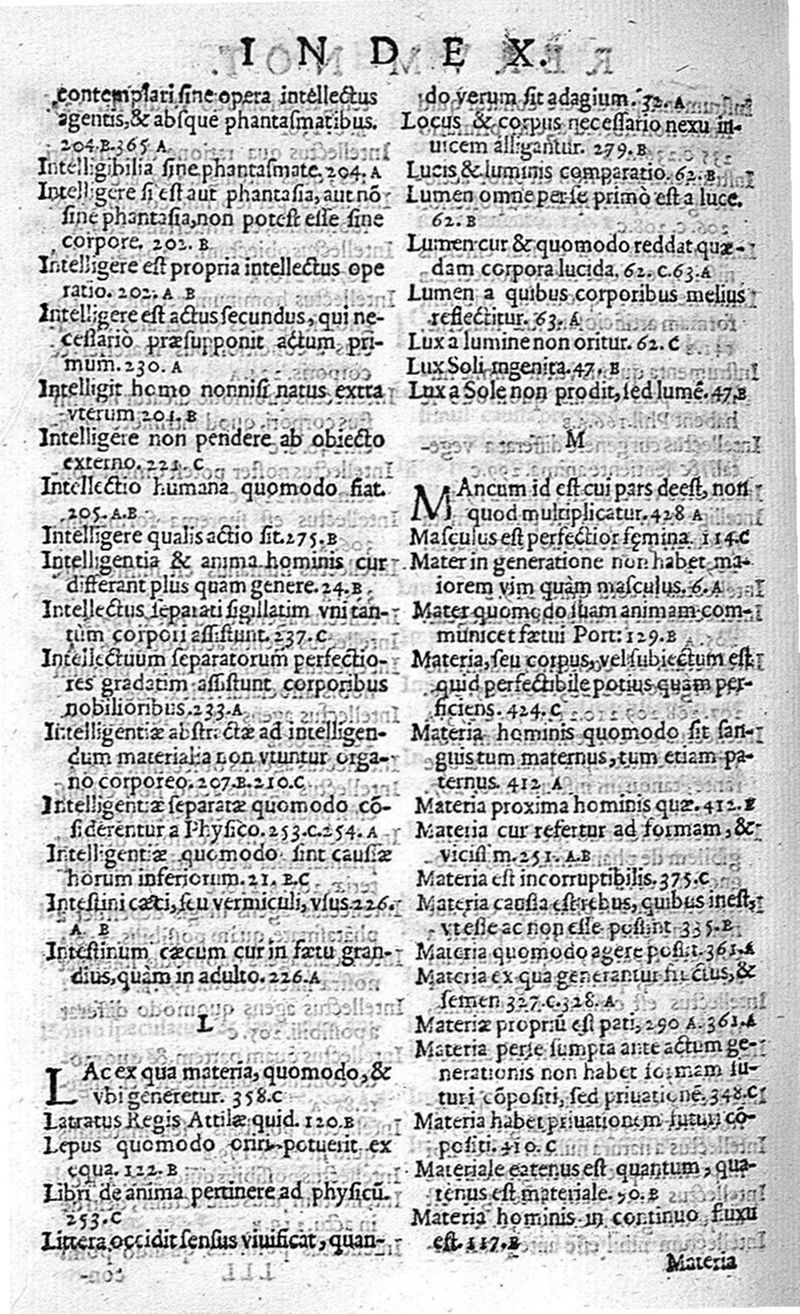 INDEX.
contemplari sine opera intellectus
agentis, & absque phantasmatibus.
204.B.365 A
Intelligibilia sine phantasmate. 204. A
Intelligere si est aut phantasia, aut nō
sine phantasia, non potest esse sine
corpore. 202. B
Intelligere est propria intellectus ope
ratio. 202. A B
Intelligere est actus secundus, qui ne-
cessario præsupponit actum pri-
mum. 230. A
Intelligit homo nonnisi natus extra
vterum 201. B
Intelligere non pendere ab obiecto
externo. 221. C
Intellectio humana quomodo fiat.
205. A.B
Intelligere qualis actio sit. 275. B
Intelligentia & anima hominis cur
differant plus quam genere. 24. B
Intellectus separati sigillatim vni tan-
tùm corpori assistunt. 237. C
Intellectuum separatorum perfectio-
res gradatim assistunt corporibus
nobilioribus. 233. A
Intelligentiæ abstractæ ad intelligen-
dum materialia non vtuntur orga-
no corporeo. 207.B.210.C
Intelligentiæ separatæ quomodo cō-
siderentur a Physico. 253.C.254. A
Intelligentiæ quomodo sint caussæ
horum inferiorum. 21. B.C
Intestini cæci, seu vermiculi, vsus. 226.
A. B
Intestinum cæcum cur in fætu gran-
dius, quàm in adulto. 226. A
L
LAc ex qua materia, quomodo, &
vbi generetur. 358.C
Latratus Regis Attilæ quid. 120. B
Lepus quomodo oriri potuerit ex
equa. 122. B
Libri de anima pertinere ad physicū.
253.C
Littera occidit sensus viuificat, quan-
do verum sit adagium. 32. A
Locus & corpus necessario nexu in-
uicem alligantur. 279. B
Lucis & luminis comparatio. 62. B
Lumen omne per se primò est a luce.
62. B
Lumen cur & quomodo reddat quæ-
dam corpora lucida. 62. C. 63. A
Lumen a quibus corporibus melius
reflectitur. 63. A
Lux a lumine non oritur. 62. C
Lux Soli ingenita. 47. B
Lux a Sole non prodit, sed lumē. 47. B
M
MAncum id est cui pars deest, non
quod multiplicatur. 428 A
Masculus est perfectior fęmina. 114.C
Mater in generatione non habet ma-
iorem vim quàm masculus. 6. A
Mater quomodo suam animam com-
municet fætui Port: 129. B
Materia, seu corpus, vel subiectum est
quid perfectibile potius quàm per-
ficiens. 424. C
Materia hominis quomodo sit san-
guis tum maternus, tum etiam pa-
ternus. 412 A
Materia proxima hominis quæ. 412.
Materia cur refertur ad formam, &
vicissim. 251. A.B
Materia est incorruptibilis. 375.C
Materia caussa est rebus, quibus inest,
vt esse ac non esse possint 335. B
Materia quomodo agere possit. 361. A
Materia ex qua generantur fructus, &
semen 327. C. 328. A
Materiæ propriū est pati, 290 A. 361. A
Materia per se sumpta ante actum ge-
nerationis non habet formam fu-
turi cōpositi, sed priuationē. 348. C
Materia habet priuationem futuri cō-
positi. 410. C
Materiale eatenus est quantum, qua-
tenus est materiale. 50. B
Materia hominis in continuo fluxu
est. 117. B
LLL
Materia